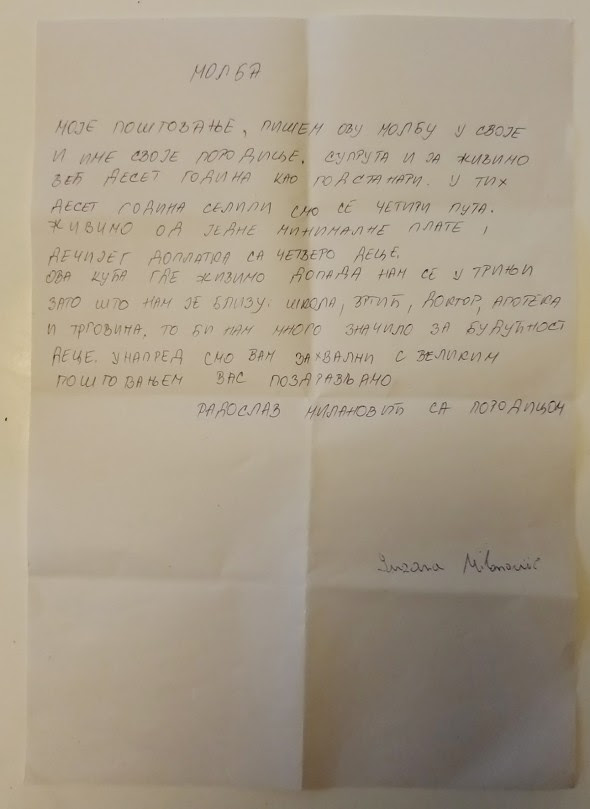 МОЛБА
МОЈЕ ПОШТОВАЊЕ, ПИШЕМ ОВУ МОЛБУ У СВОЈЕ
И ИМЕ СВОЈЕ ПОРОДИЦЕ. СУПРУГА И ЈА ЖИВИМО
ВЕЋ ДЕСЕТ ГОДИНА КАО ПОДСТАНАРИ. У ТИХ
ДЕСЕТ ГОДИНА СЕЛИЛИ СМО СЕ ЧЕТИРИ ПУТА.
ЖИВИМО ОД ЈЕДНЕ МИНИМАЛНЕ ПЛАТЕ И
ДЕЧИЈЕГ ДОПЛАТКА СА ЧЕТВЕРО ДЕЦЕ.
ОВА КУЋА ГДЕ ЖИВИМО ДОПАДА НАМ СЕ У ТРЊИ
ЗАТО ШТО НАМ ЈЕ БЛИЗУ: ШКОЛА, ВРТИЋ, ДОКТОР, АПОТЕКА
И ТРГОВИНА. ТО БИ НАМ МНОГО ЗНАЧИЛО ЗА БУДУЋНОСТ
ДЕЦЕ. УНАПРЕД СМО ВАМ ЗАХВАЛНИ С ВЕЛИКИМ
ПОШТОВАЊЕМ ВАС ПОЗДРАВЉАМО
РАДОСЛАВ МИЛАНОВИЋ СА ПОРОДИЦОМ
Suzana Milanović